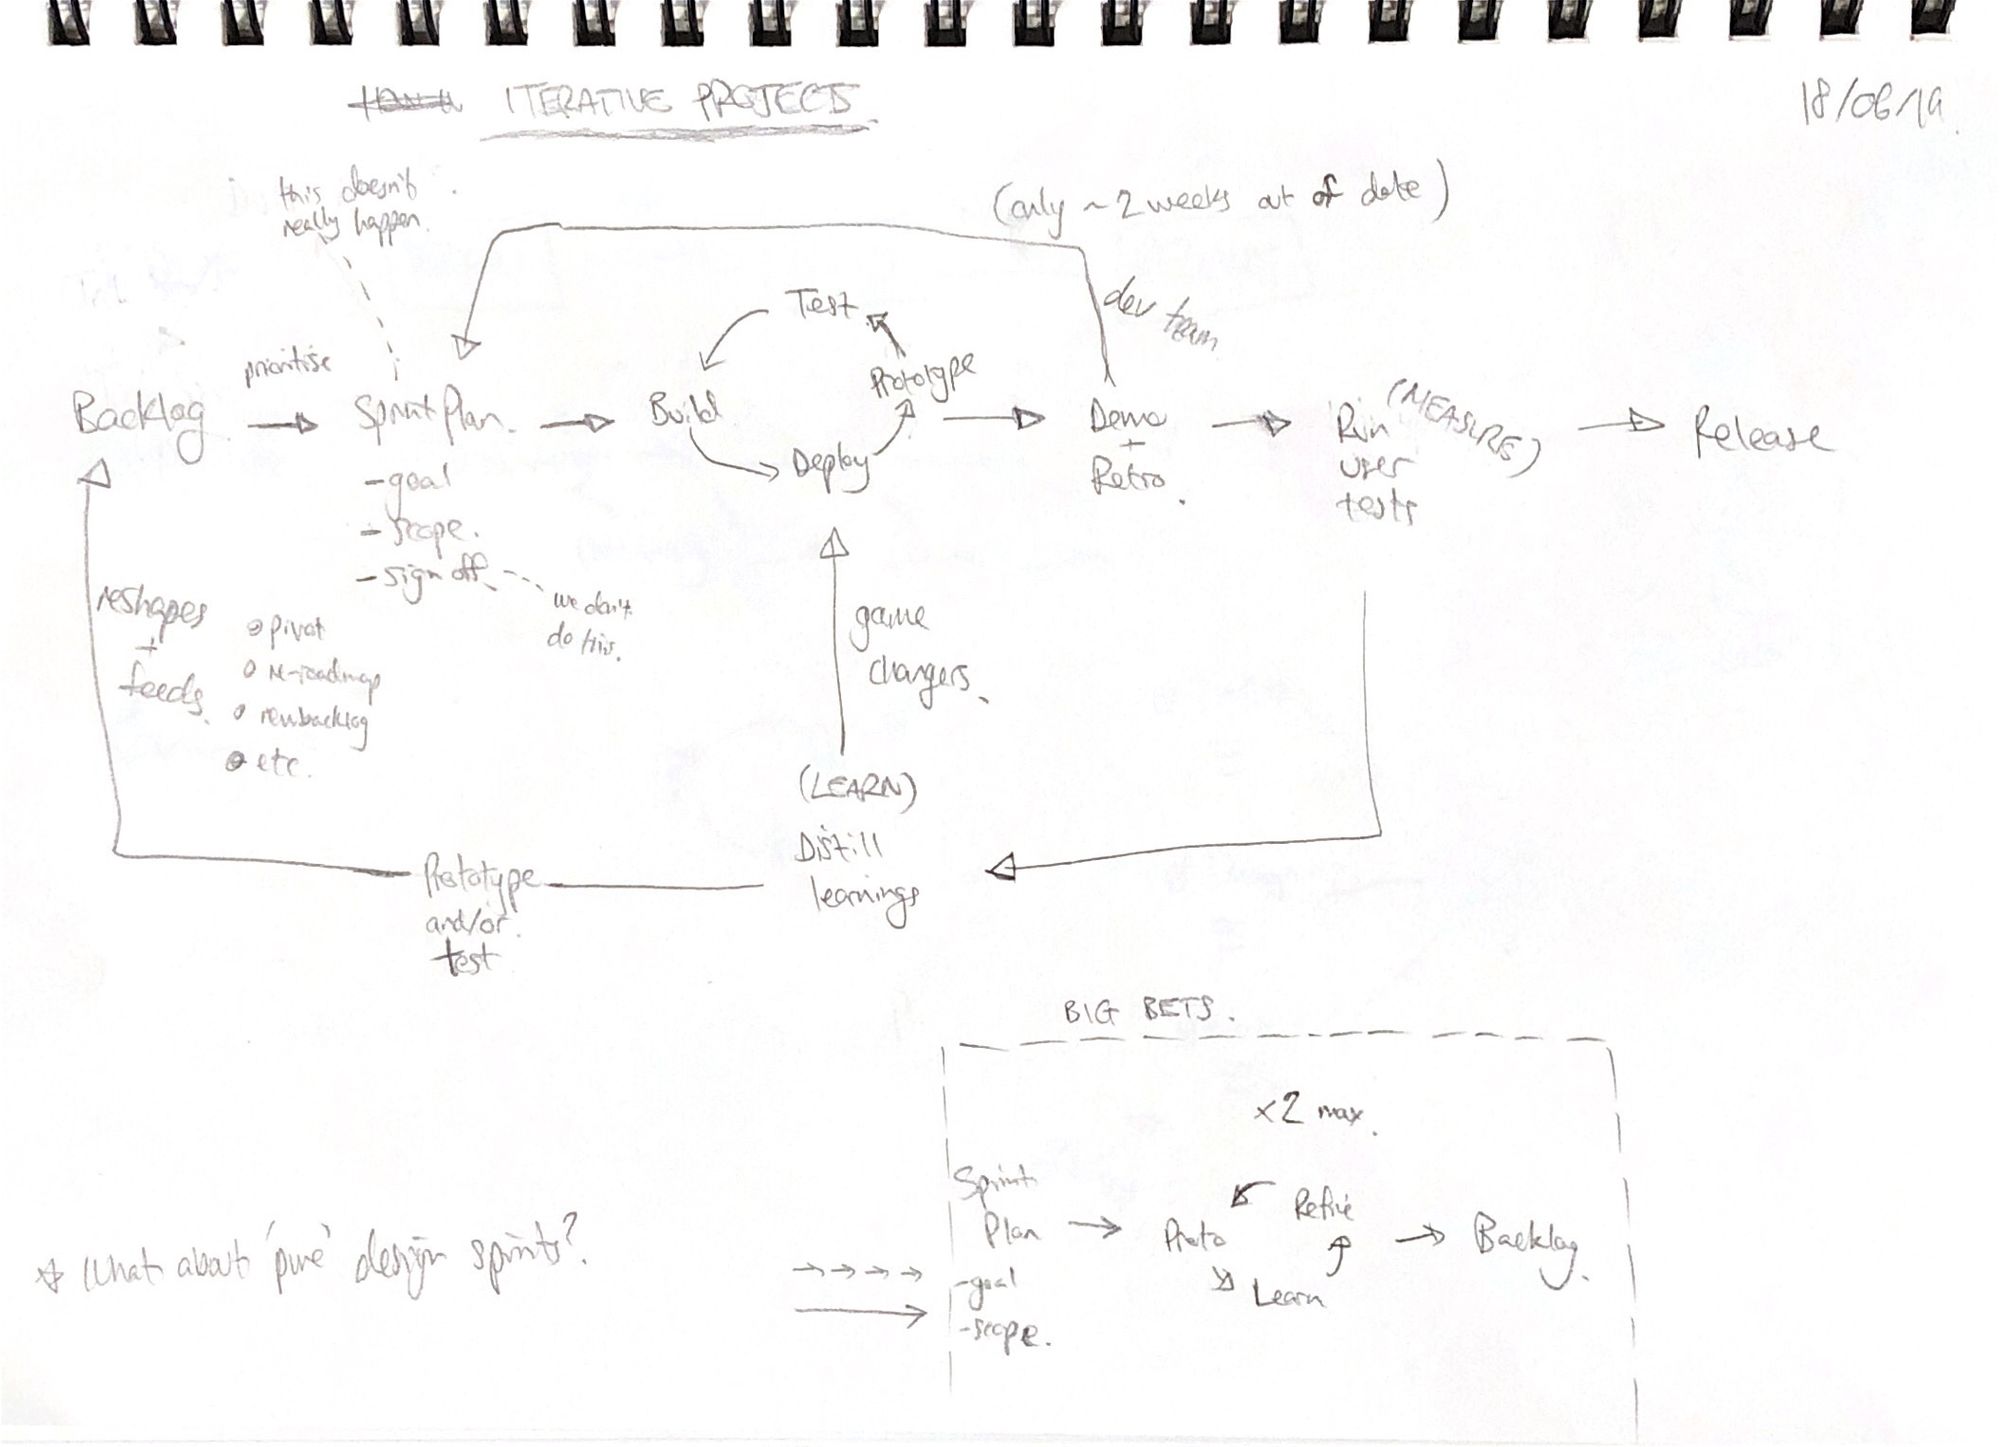 ITERATIVE PROJECTS
18/06/19
this doesn't
really happen.
(only ~2 weeks out of date)
dev team
Test
prioritise
Prototype
Backlog
Sprint Plan.
Build
Deploy
Demo
+
Retro.
Run
user
tests
(MEASURE)
Release
- goal
- scope.
- sign off.
we don't
do this.
reshapes
+
feeds.
pivot
re-roadmap
new backlog
etc.
game
changers.
(LEARN)
Distill
learnings
Prototype
and/or
test
BIG BETS.
x2 max.
Sprint
Plan
- goal
- scope.
Proto
Refine
Learn
Backlog.
* What about 'pure' design sprints?